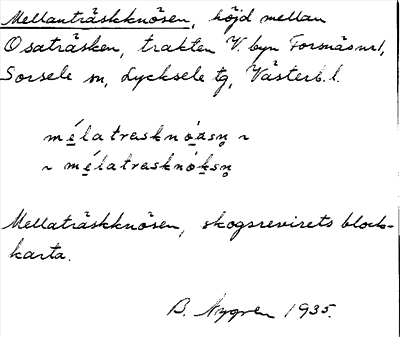 Mellanträskknösen, höjd mellan
Osaträsken, trakten V. byn Forsnäs nr 1,
Sorsele sn, Lycksele tg, Västerb. l.
~
~
Mellaträskknösen, skogsrevirets block-
karta.
B. Nygren 1935.